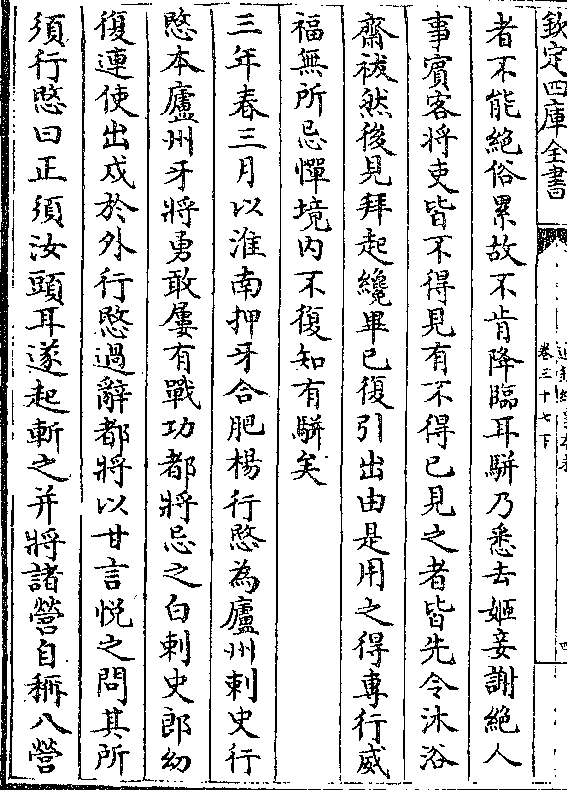 欽定四庫全書
卷三十七下
者不能絶俗累故不肯降臨耳駢乃悉去姬妾謝絶人
事賓客將吏皆不得見有不得已見之者皆先令沐浴
齋祓然後見拜起纔畢已復引出由是用之得專行威
福無所忌憚境内不復知有駢矣
三年春三月以淮南押牙合肥楊行愍為廬州刺史行
愍本廬州牙將勇敢屢有戰功都將忌之白刺史郎幼
復連使出戍於外行愍過辭都將以甘言悅之問其所
須行愍曰正須汝頭耳遂起斬之并將諸營自稱八營